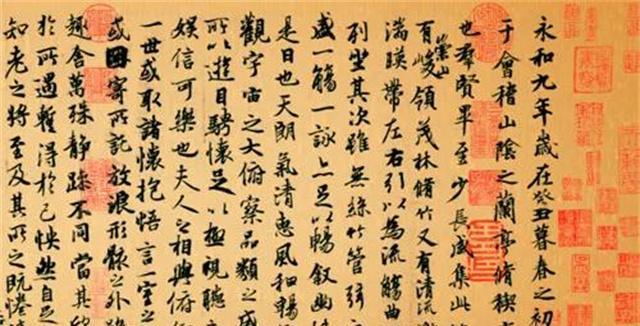 永和九年歲在癸丑暮春之初
于會稽山陰之蘭亭脩稧
也羣賢畢至少長咸集此
有崇山峻領茂林脩竹又有清流
湍暎帶左右引以為流觴曲
列坐其次雖無絲竹管弦
盛一觴一詠亦足以暢敘幽
是日也天朗氣清惠風和暢
觀宇宙之大俯察品類之
所以遊目騁懷足以極視聽
娛信可樂也夫人之相與俯
一世或取諸懷抱悟言一室之
或因寄所託放浪形骸之外
趣舍萬殊靜躁不同當其欣
於所遇蹔得於己怏然自足
知老之將至及其所之既惓